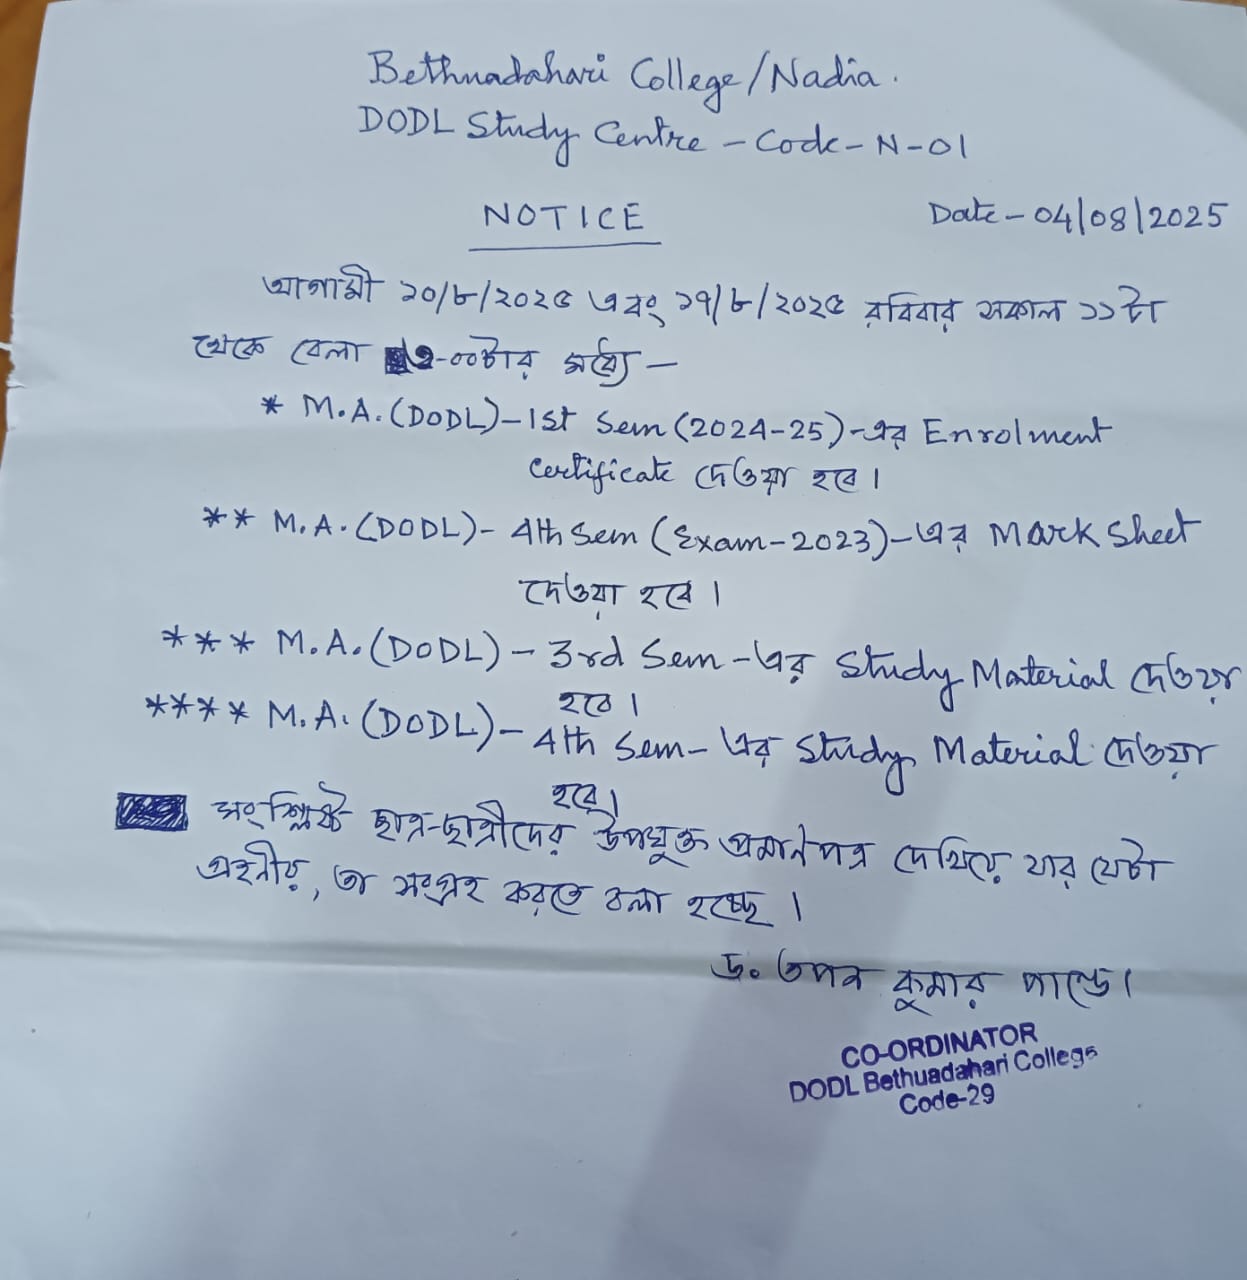 Bethuadahari College/Nadia.
DODL Study Centre - Code - N-01
NOTICE
Date - 04/08/2025
আগামী ১০/৮/২০২৫ এবং ১৭/৮/২০২৫ রবিবার সকাল ১১টা
থেকে বেলা ২-০০টার মধ্যে —
* M.A. (DODL) - 1st Sem (2024-25) - এর Enrolment
Certificate দেওয়া হবে।
** M.A. (DODL) - 4th Sem (Exam-2023) - এর Mark Sheet
দেওয়া হবে।
*** M.A. (DODL) - 3rd Sem - এর Study Material দেওয়া
হবে।
**** M.A. (DODL) - 4th Sem - এর Study Material দেওয়া
হবে।
সংশ্লিষ্ট ছাত্র-ছাত্রীদের উপযুক্ত প্রমাণপত্র দেখিয়ে যার যেটা
গ্রহনীয়, তা সংগ্রহ করতে বলা হচ্ছে।
ড. তপন কুমার পান্ডে।
CO-ORDINATOR
DODL Bethuadahari College
Code-29